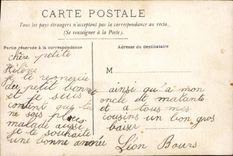 CARTE POSTALE
Tous les pays étrangers n'acceptent pas la correspondance au recto.
(Se renseigner à la Poste).
Partie réservée à la correspondance
Adresse du destinataire
M
Chère petite
Héloïse
je te remercie
du petit bonnet
et je suis
content que tu
ne sois plus
malade aussi
je te souhaite
une bonne année
ainsi qu'à mon
oncle et matante
et a tous mes
cousins un bon gros
baiser
Léon Bours